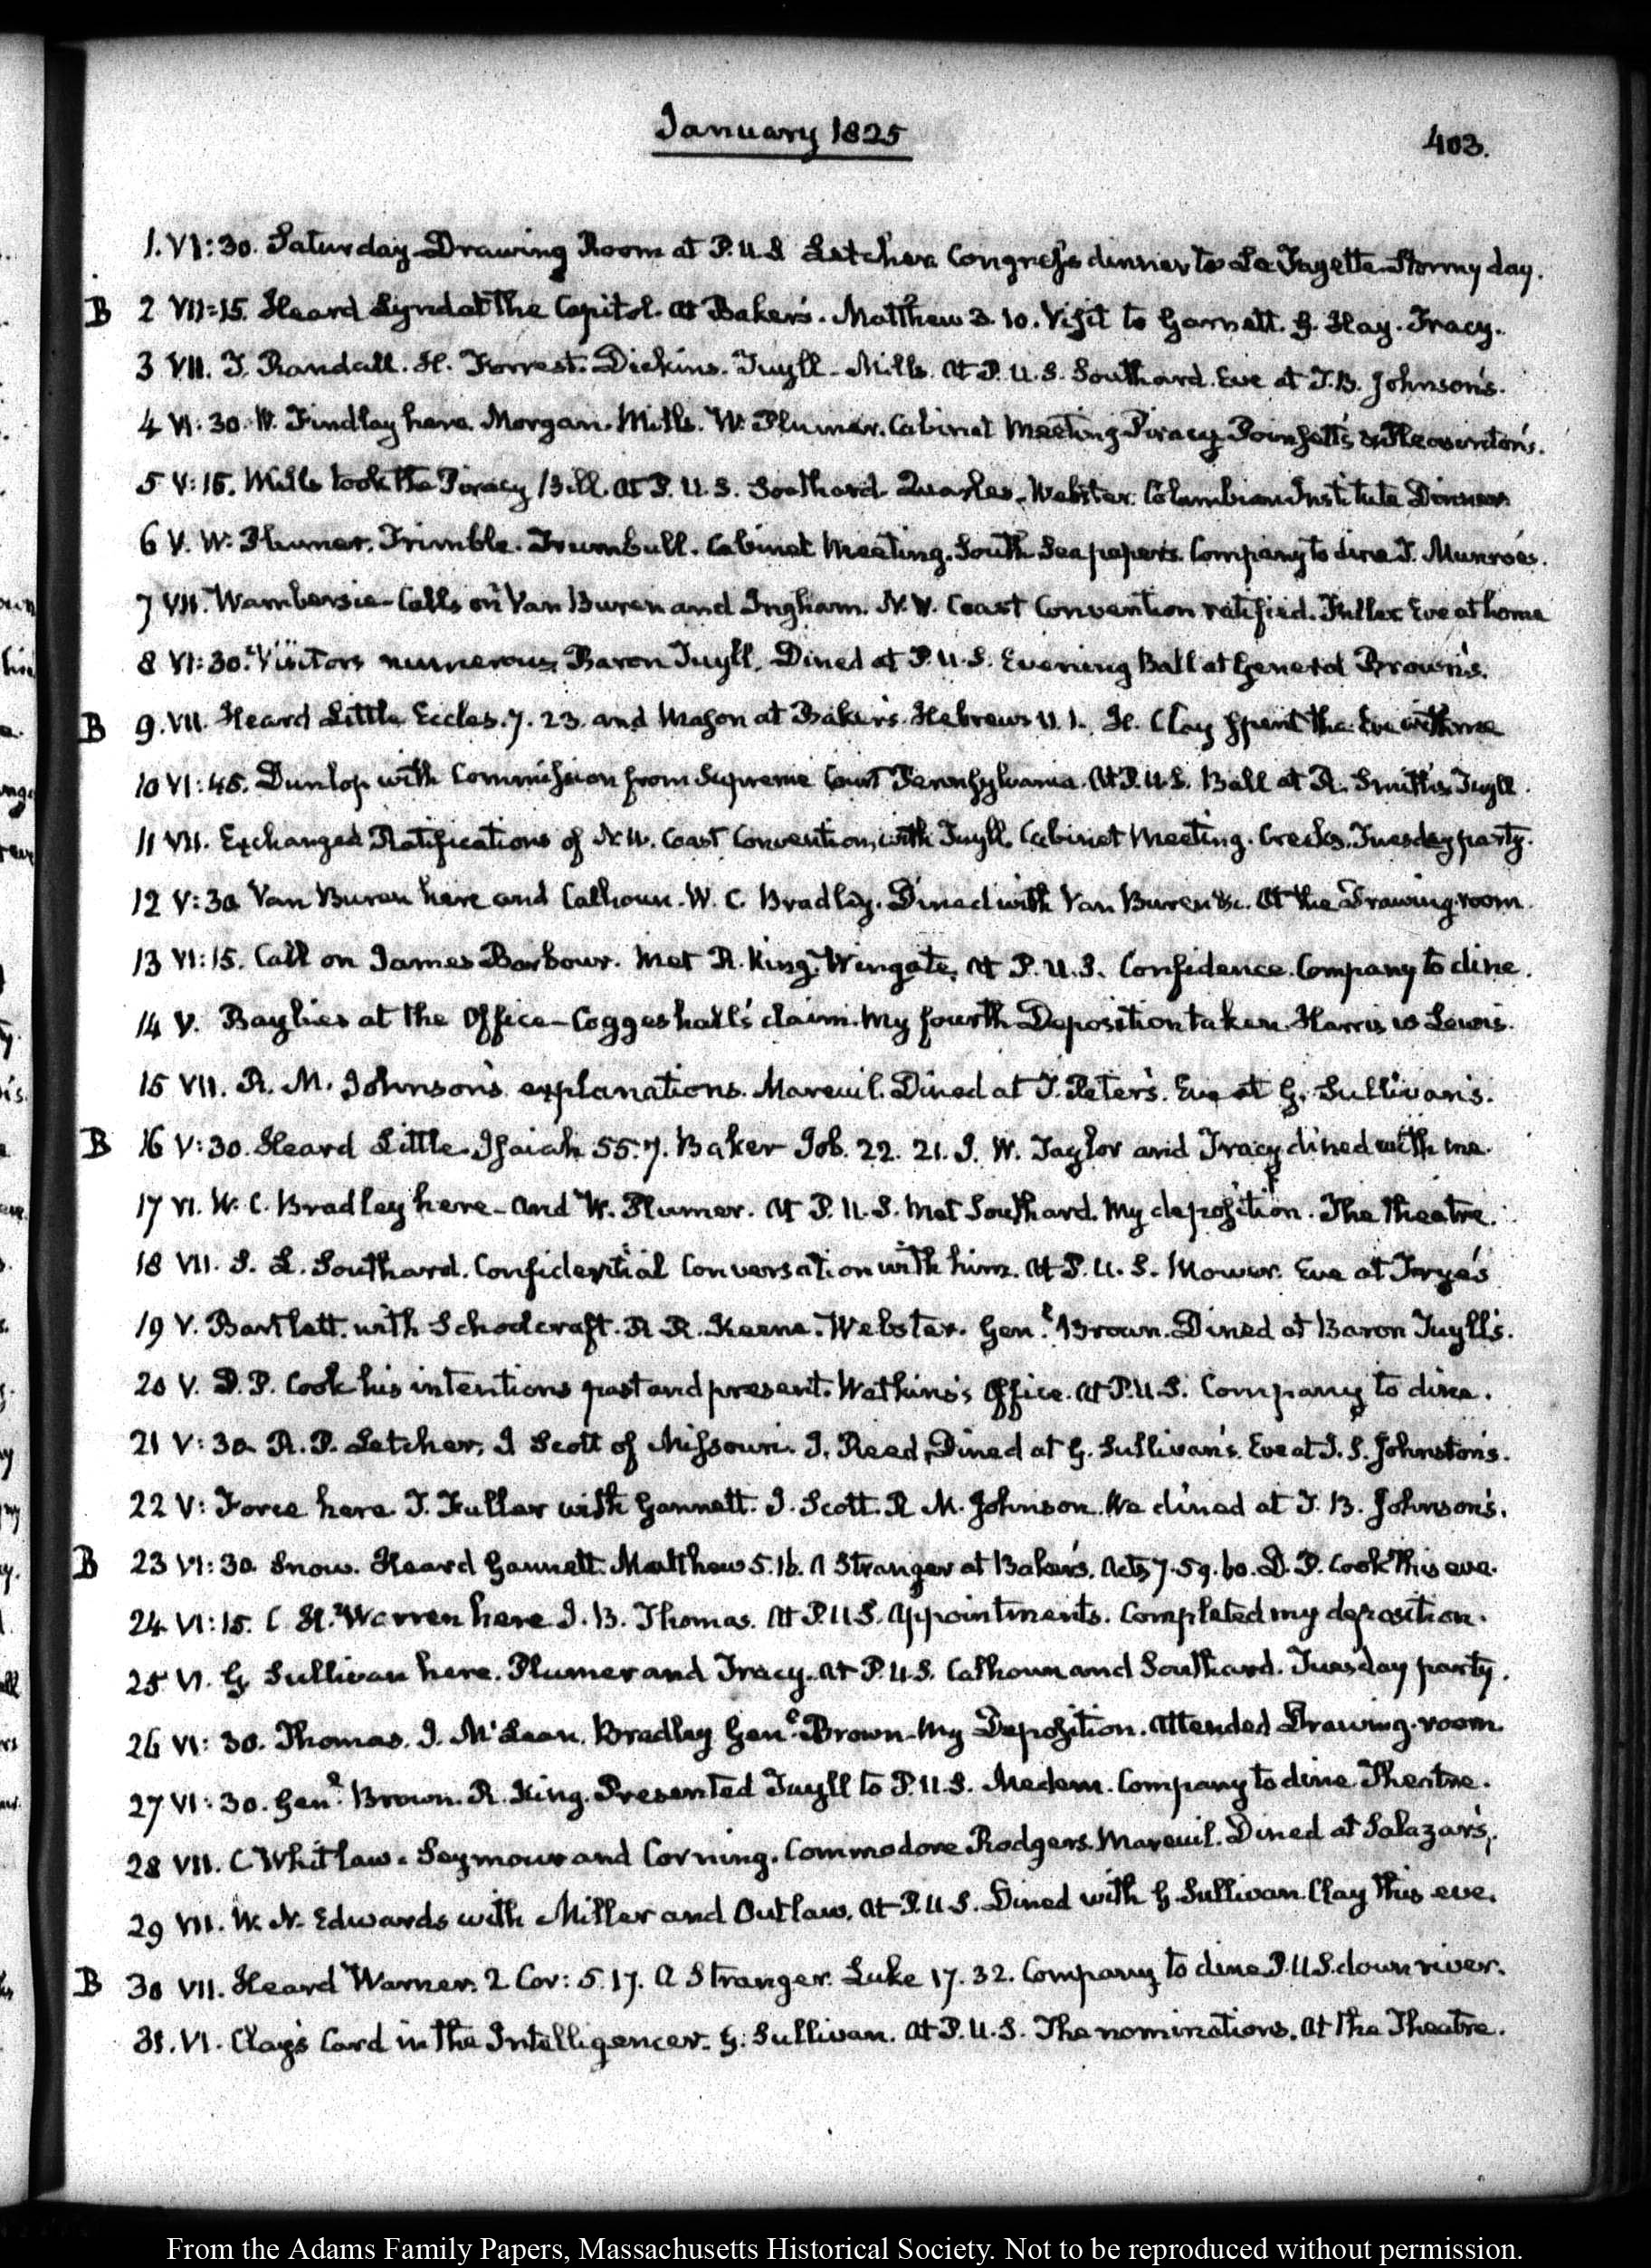 January 1825
403.
1. VI:30. Saturday Drawing Room at P.U.S Letcher. Congress dinner to La Fayette Stormy day.
B 2 VII:15. Heard Lynd at the Capitol. At Baker's. Matthew 3. 10. Visit to Gannett. G. Hay. Tracy.
3 VII. T. Randall. H. Forrest. Dickins. Tuyll. Mills. At P.U.S. Southard. Eve at J.B. Johnson's.
4 VI:30. W. Findlay here. Morgan. Mills. W. Plumer. Cabinet Meeting. Piracy Poinsett's & Pleasonton's.
5 V:15. Mills took the Piracy Bill. At P.U.S. Southard. Quarles. Webster. Columbian Institute Dinner
6 V. W. Plumer. Trimble. Trumbull. Cabinet Meeting. South Sea papers. Company to dine T. Munroe's.
7 VII. Wambersie. Calls on Van Buren and Ingham. N.W. Coast Convention ratified. Fuller. Eve at home
8 VI:30. Visitors numerous. Baron Tuyll. Dined at P.U.S. Evening Ball at General Brown's.
B 9. VII. Heard Little Eccles. 7. 23. and Mason at Baker's. Hebrews 11. 1. H. Clay spent the Eve with me
10 VI:45. Dunlop with Commission from Supreme Court Pennsylvania. At P.U.S. Ball at R. Smith's. Tuyll.
11 VII. Exchanged Ratifications of N.W. Coast Convention, with Tuyll. Cabinet Meeting. Creeks. Tuesday party.
12 V:30 Van Buren here and Calhoun. W. C. Bradley. Dined with Van Buren &c. At the Drawing room.
13 VI:15. Call on James Barbour. Met R. King. Wingate. At P.U.S. Confidence. Company to dine.
14 V. Baylies at the Office—Coggeshall's claim. My fourth Deposition taken. Harris vs Lewis.
15 VII. R. M. Johnson's explanations. Mareuil. Dined at T. Peter's. Eve at G. Sullivan's.
B 16 V:30. Heard Little. Isaiah 55. 7. Baker Job. 22. 21. J. W. Taylor and Tracy dined with me.
17 VI. W. C. Bradley here—and W. Plumer. At P.U.S. Met Southard. My deposition. The Theatre.
18 VII. S. L. Southard. Confidential Conversation with him. At P.U.S. Mower. Eve at Taylor's
19 V. Bartlett. with Schoolcraft. R. R. Keene. Webster. Genl. Brown. Dined at Baron Tuyll's.
20 V. D. P. Cook his intentions past and present. Watkins's Office. At P.U.S. Company to dine.
21 V:30. R. P. Letcher. J Scott of Missouri. J. Reed. Dined at G. Sullivan's. Eve at J. S. Johnston's.
22 V: Force here. T. Fuller with Gannett. J. Scott. R M. Johnson. We dined at J. B. Johnson's.
B 23 VI:30. Snow. Heard Gannett. Matthew 5. 16. A Stranger at Baker's. Acts 7. 59. 60. D. P. Cook this eve.
24 VI:15. C. H. Warren here J. B. Thomas. At P.U.S. Appointments. Completed my deposition.
25 VI. G. Sullivan here. Plumer and Tracy. At P.U.S. Calhoun and Southard. Tuesday party.
26 VI:30. Thomas. J. McLean. Bradley Genl. Brown. My Deposition. Attended Drawing-room.
27 VI:30. Genl. Brown. R. King. Presented Tuyll to P.U.S. Medem. Company to dine. Theatre.
28 VII. C Whitlaw. Seymour and Corning. Commodore Rodgers. Mareuil. Dined at Salazar's.
29 VII. W. N. Edwards with Miller and Outlaw. At P.U.S. Dined with G. Sullivan. Clay this eve.
B 30 VII. Heard Warner. 2 Cor: 5. 17. A Stranger. Luke 17. 32. Company to dine P.U.S. down river.
31. VI. Clay's Card in the Intelligencer. G. Sullivan. At P.U.S. The nominations. At the Theatre.
From the Adams Family Papers, Massachusetts Historical Society. Not to be reproduced without permission.